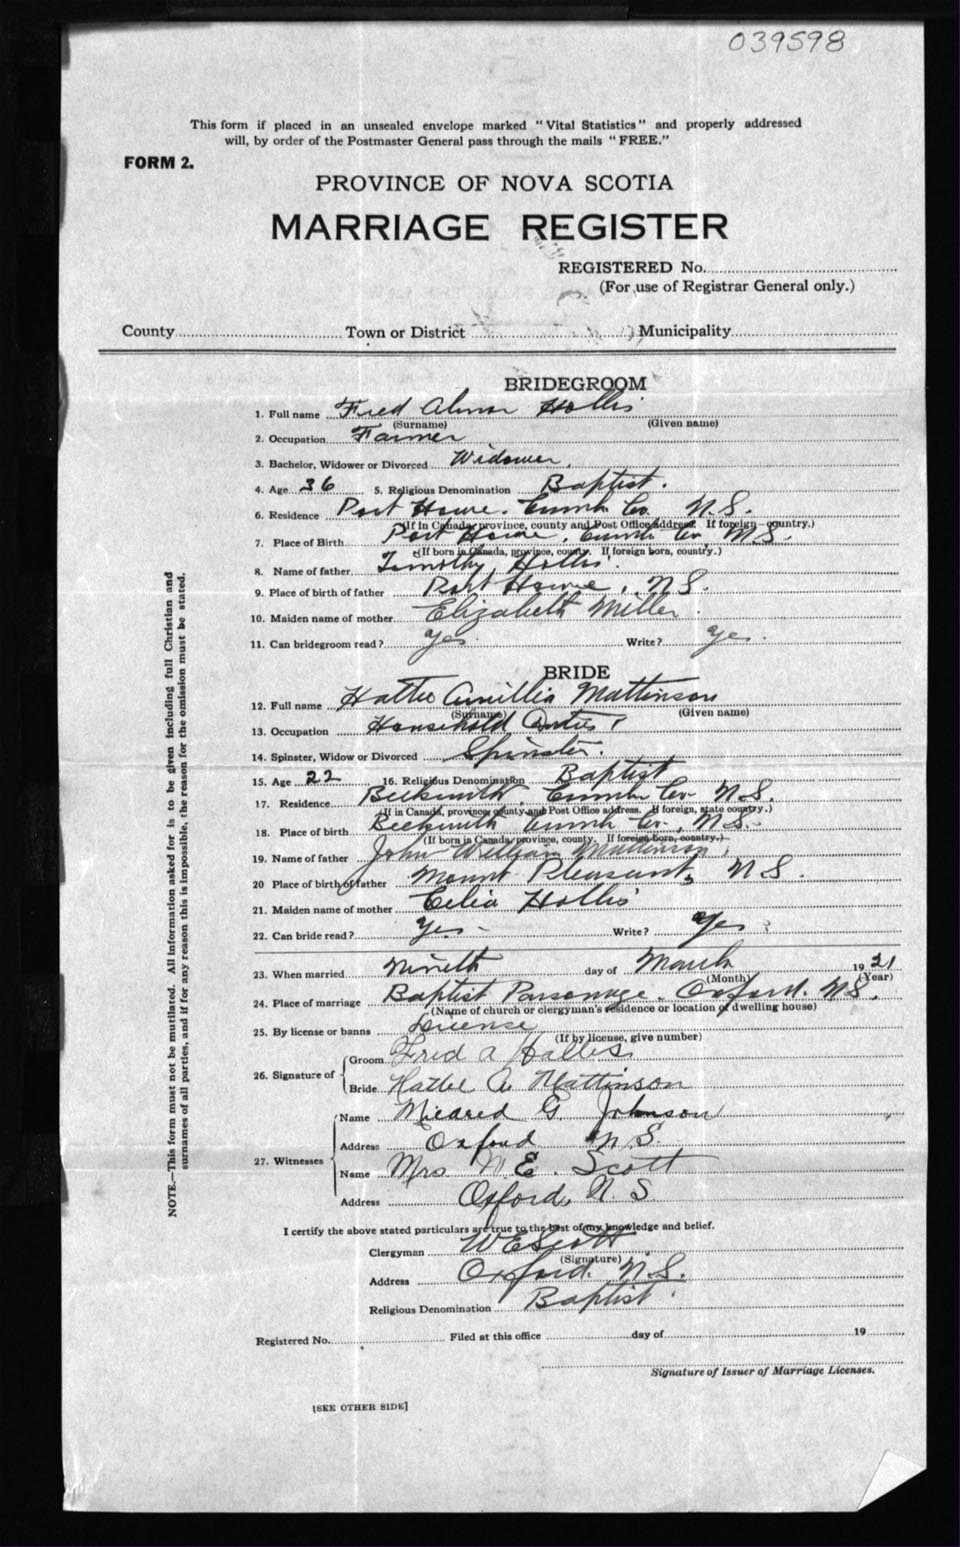 039598
This form if placed in an unsealed envelope marked "Vital Statistics" and properly addressed
will, by order of the Postmaster General pass through the mails "FREE."
FORM 2.
PROVINCE OF NOVA SCOTIA
MARRIAGE REGISTER
REGISTERED No.
(For use of Registrar General only.)
County Town or District Municipality
BRIDEGROOM
1. Full name Fred Hollis
(Surname) (Given name)
2. Occupation Farmer
3. Bachelor, Widower or Divorced Widower.
4. Age 36 5. Religious Denomination Baptist.
6. Residence Port Howe. Cumb. Co. N.S.
(If in Canada, province, county and Post Office address. If foreign country.)
7. Place of Birth Port Howe, Cumb. Co. N.S.
(If born in Canada, province, county. If foreign born, country.)
8. Name of father Timothy Hollis
9. Place of birth of father Port Howe, N.S.
10. Maiden name of mother Elizabeth Miller
11. Can bridegroom read? Yes Write? Yes.
BRIDE
12. Full name Mattinson
(Surname) (Given name)
13. Occupation Household Duties
14. Spinster, Widow or Divorced Spinster.
15. Age 22 16. Religious Denomination Baptist
17. Residence Beckwith, Cumb. Co. N.S.
(If in Canada, province, county and Post Office address. If foreign, state country.)
18. Place of birth Beckwith Cumb. Co., N.S.
(If born in Canada, province, county. If foreign born, country.)
19. Name of father John William Mattinson,
20 Place of birth of father Mount Pleasant, N S.
21. Maiden name of mother Celia Hollis
22. Can bride read? Yes - Write? Yes
23. When married Nineth day of March 1921
(Month) (Year)
24. Place of marriage Baptist Parsonage, Oxford. N.S.
(Name of church or clergyman's residence or location of dwelling house)
25. By license or banns License
(If by license, give number)
26. Signature of
Groom Fred A Hollis
Bride Mattinson
27. Witnesses
Name Mildred G Johnson
Address Oxford N.S.
Name Mrs W.E. Scott
Address Oxford, N. S
I certify the above stated particulars are true to the best of my knowledge and belief.
Clergyman W E Scott
(Signature)
Address Oxford. N.S.
Religious Denomination Baptist.
Registered No. Filed at this office day of 19
Signature of Issuer of Marriage Licenses.
[SEE OTHER SIDE]
NOTE.—This form must not be mutilated. All information asked for is to be given including full Christian and
surnames of all parties, and if for any reason this is impossible, the reason for the omission must be stated.